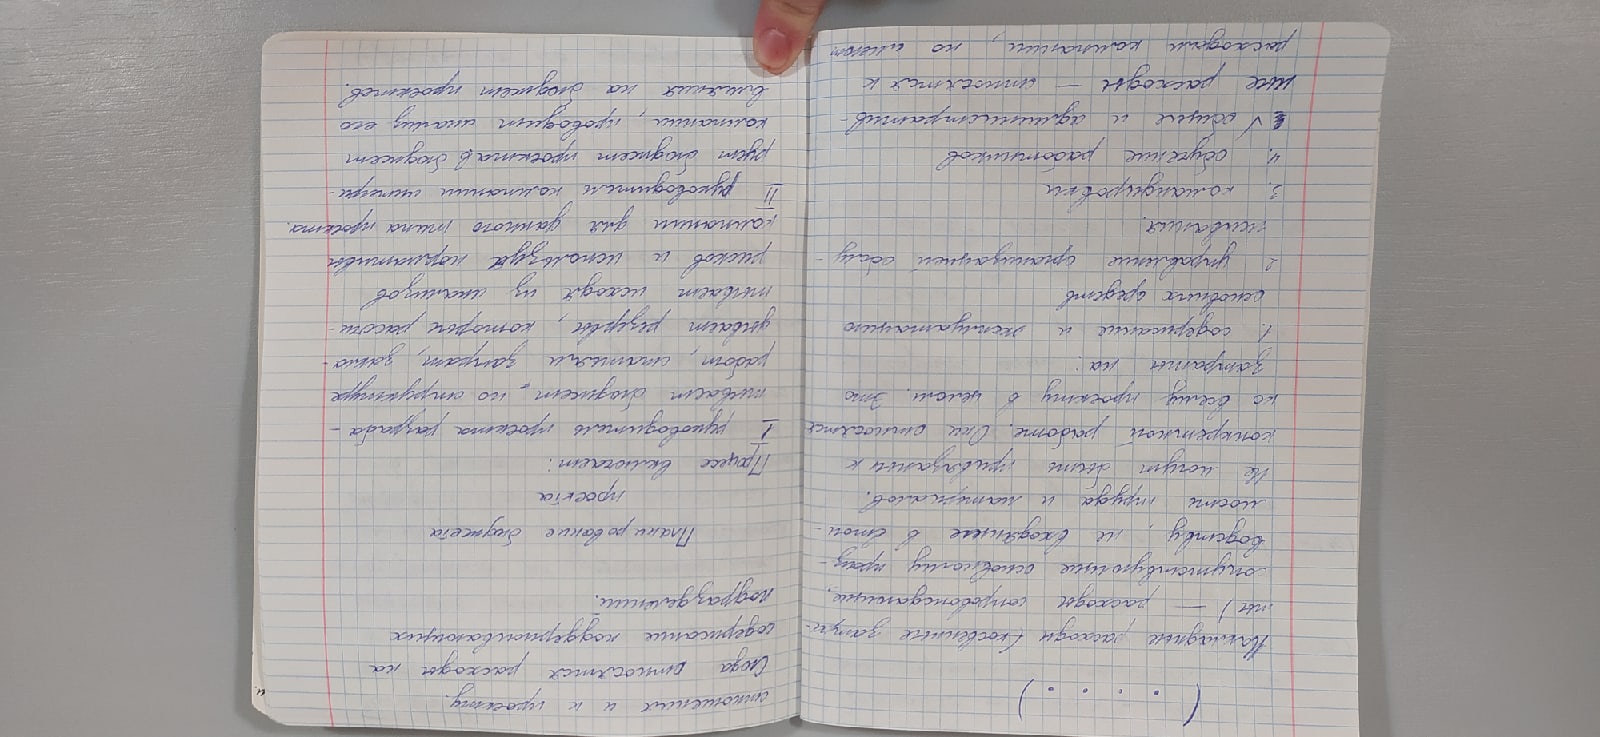 ( . . . . )
Накладные расходы (косвенные затра-
ты) — расходы сопровождающие,
сопутствующие основному произ-
водству, не входянные в стои-
мость труда и материалов.
Не могут быть привязаны к
конкретной работе. Они относятся
ко всему проекту в целом. Это
затраты на:
1. содержание и эксплуатацию
основных средств
2 управление организацией обслу-
живания.
3. командировки
4. обучение работников
✓ общие и административ-
ные расходы — относятся к
расходам компании, но имеют
отношения и к проекту.
Сюда относятся расходы на
содержание поддерживающих
подразделений.
Планирование бюджета
проекта
Процесс включает:
I руководитель проекта разраба-
тывает бюджет по структуре
работ, статьям затрат, закла-
дывает резервы, которые рассчи-
тывает исходя из анализов
рисков и используя нормативы
компании для данного типа проекта.
II руководители компании интегри-
рует бюджет проекта в бюджет
компании, проводит анализ его
влияния на бюджет проектов.
и.